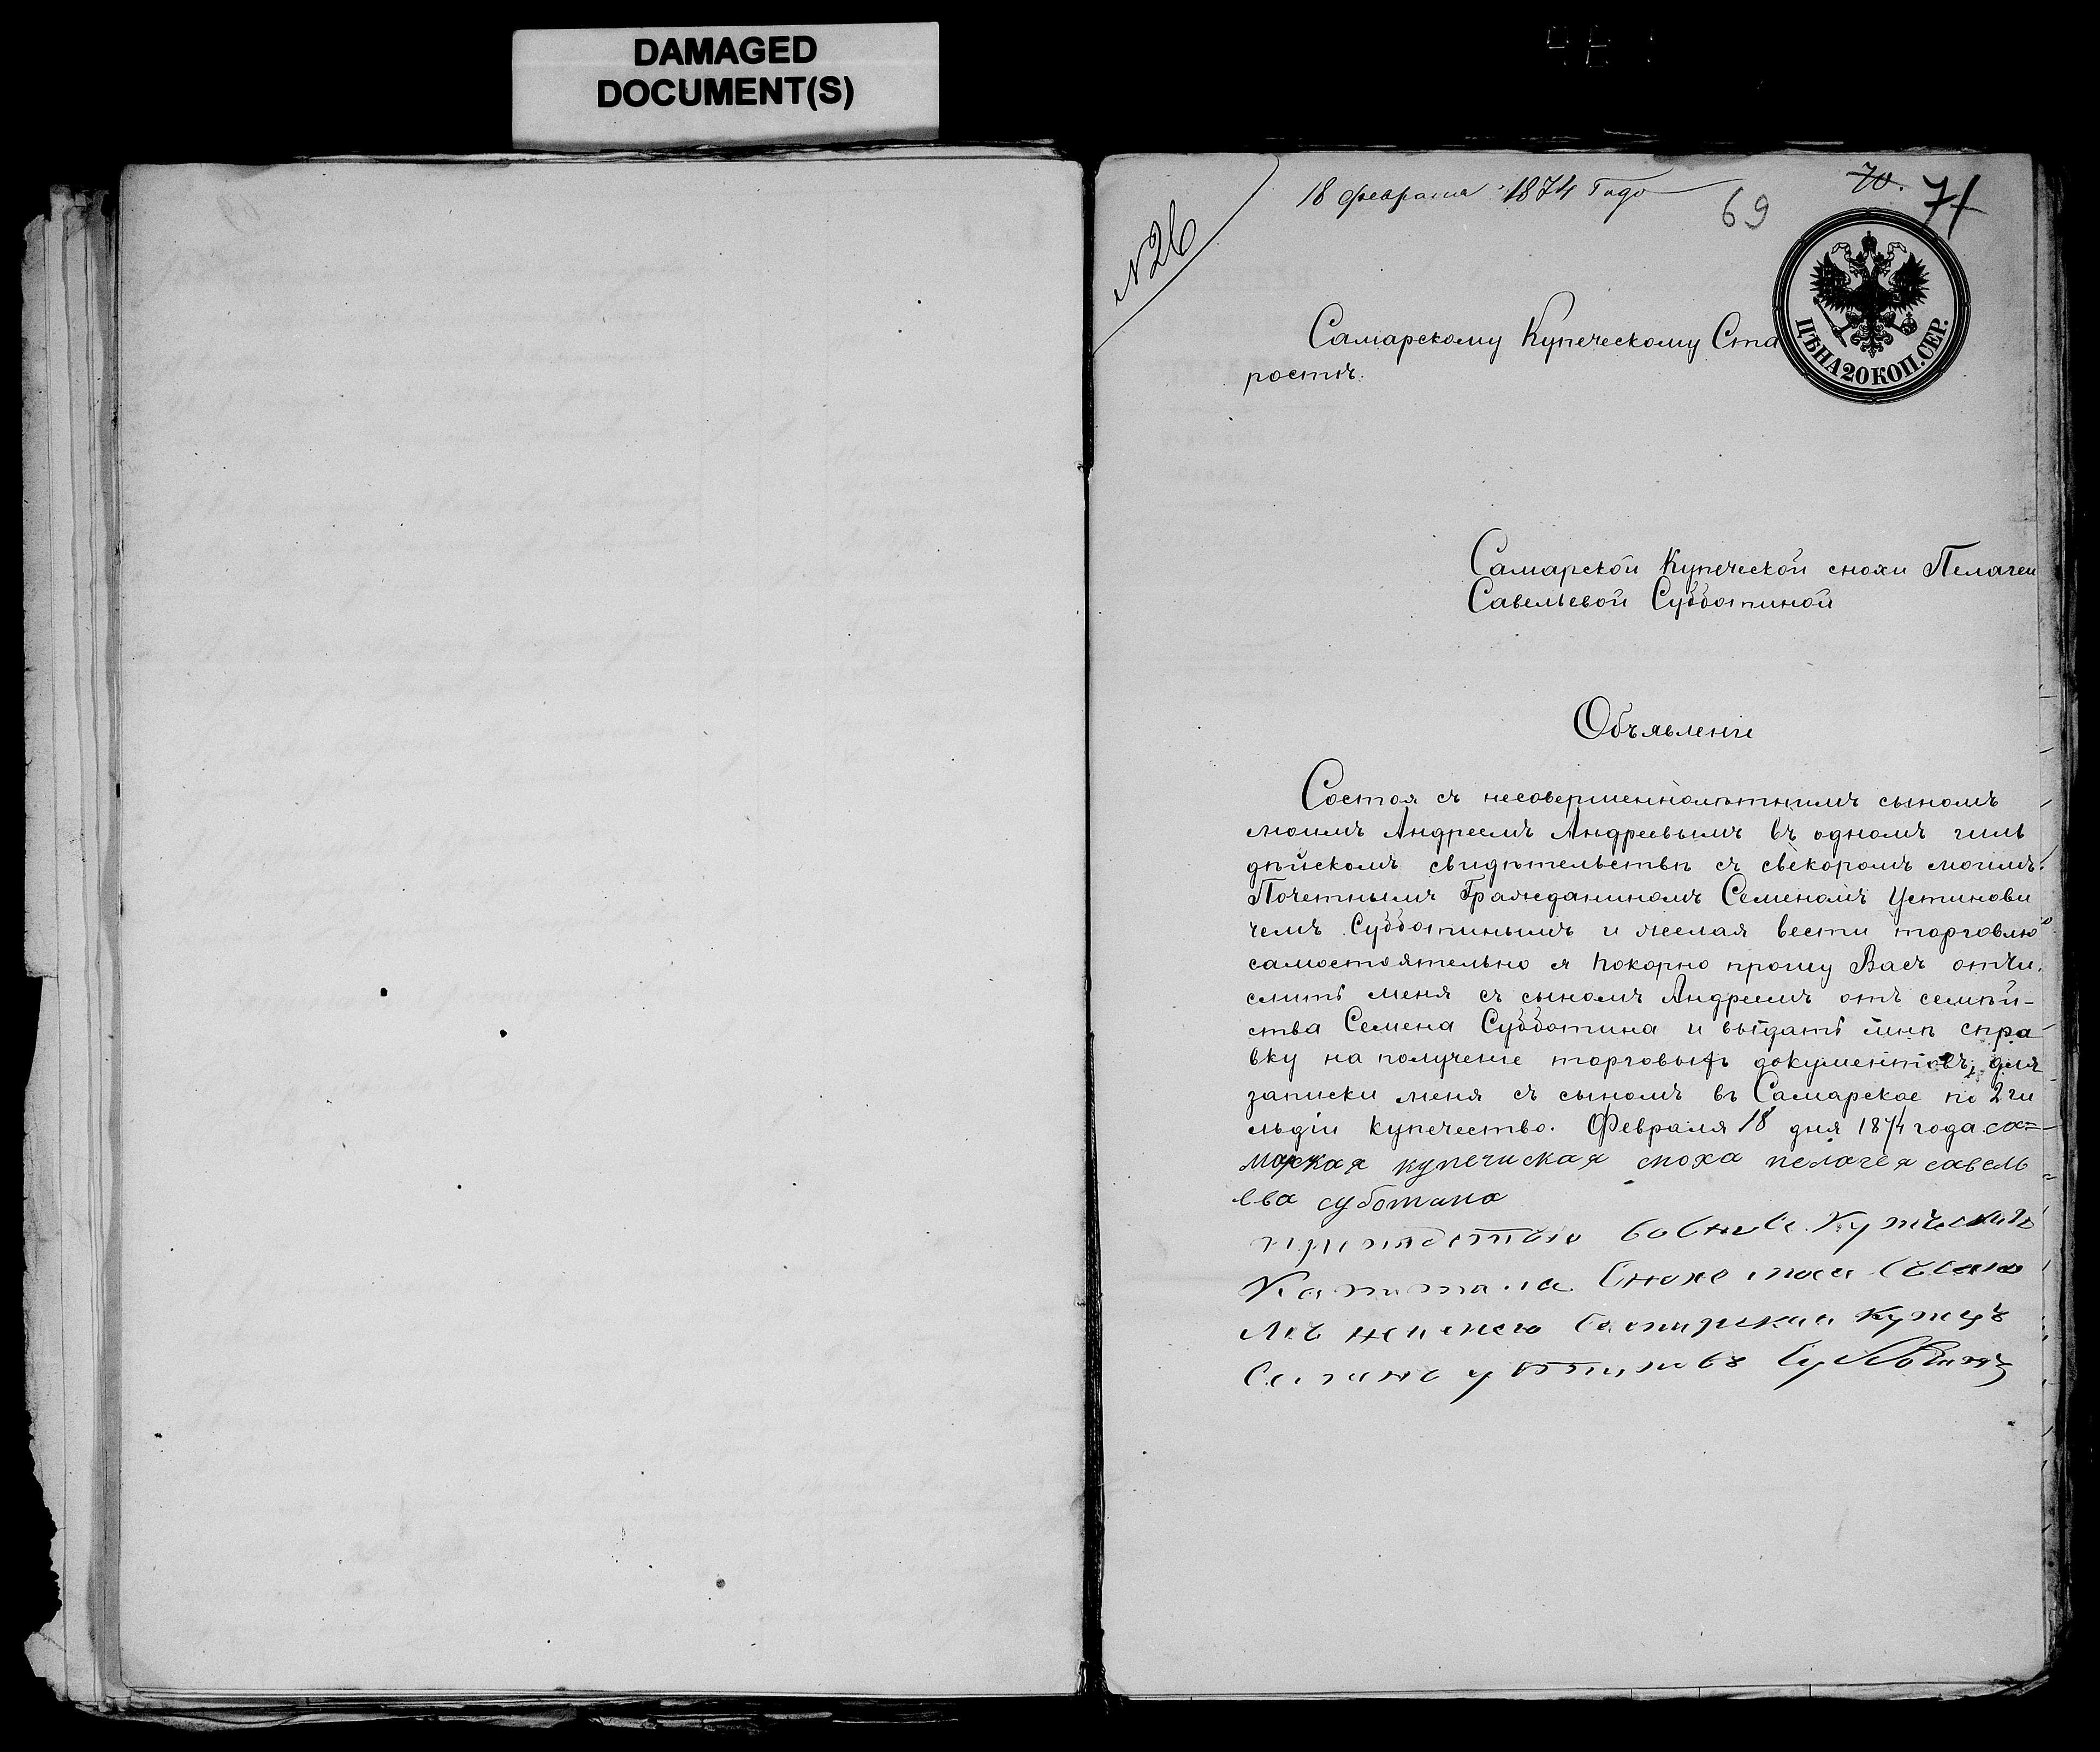 DAMAGED
DOCUMENT(S)
18 февраля 1874 Года
69
70.
71
№26
ЦѢНА 20 КОП. СЕР.
Самарскому Купеческому Ста
ростѣ.
Самарской Купеческой снохи Пелагеи
Савельевой Субботиной
Объявленіе
Состоя съ несовершеннолѣтнимъ сыномъ
моимъ Андреемъ Андреевымъ въ одномъ гиль
дѣйскомъ свидѣтельствѣ съ свекоромъ моимъ
Почетнымъ Гражданиномъ Семеномъ Устинови
чемъ Субботинымъ и желая вести торговлю
самостоятельно я покорно прошу Васъ отчи
слить меня съ сыномъ Андреемъ отъ семѣй-
ства Семена Субботина и выдать мнѣ спра
вку на полученіе торговыхъ документовъ, для
записки меня съ сыномъ въ Самарское по 2 ги
льдіи купечество. Февраля 18 дня 1874 года са=
марская купечиская сноха пелагея савель
ева суботина
Капитала Снохе моей
Самарскай купецъ
Семенъ устиновъ Субботинъ